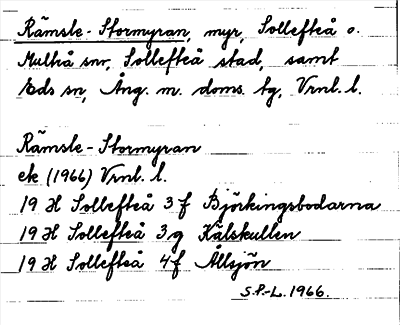 Rämsle-Stormyran, myr, Sollefteå o.
Multrå snr, Sollefteå stad, samt
Eds sn, Ång. m. doms. tg, Vrnl. l.
Rämsle-Stormyran
ek (1966) Vrnl. l.
19 H Sollefteå 3 f Björkingsbodarna
19 H Sollefteå 3 g Kälskullen
19 H Sollefteå 4 f Ållsjön
S.P.-L. 1966.